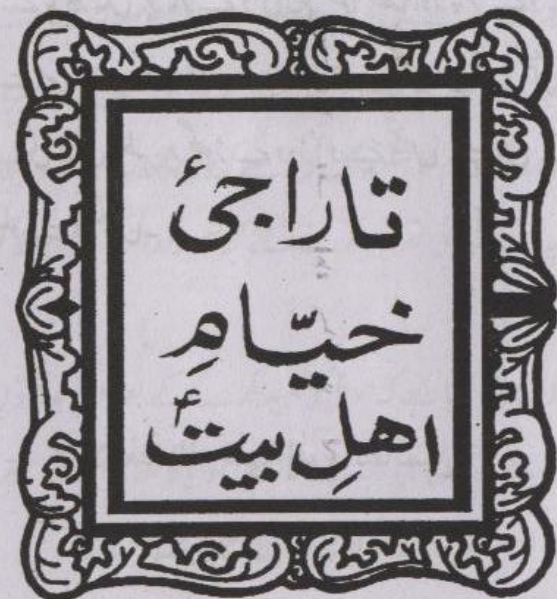 تاراجیٔ
خیّامِ
اھلِ بیتؑ